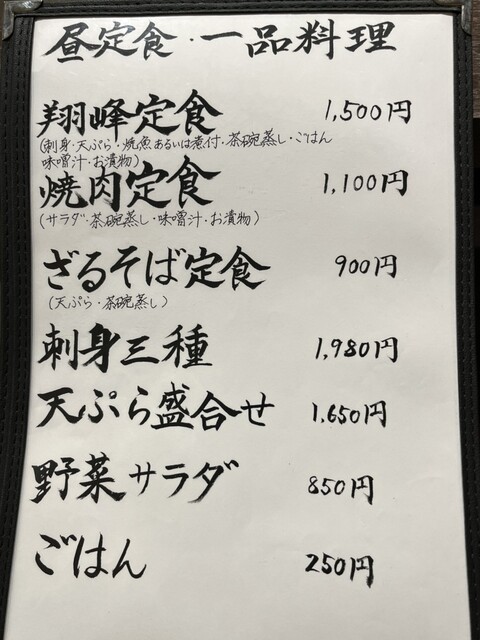 昼定食・一品料理
翔峰定食 1,500円
(刺身・天ぷら・焼魚あるいは煮付・茶碗蒸し・ごはん
味噌汁・お漬物)
焼肉定食 1,100円
(サラダ・茶碗蒸し・味噌汁・お漬物)
ざるそば定食 900円
(天ぷら・茶碗蒸し)
刺身三種 1,980円
天ぷら盛合せ 1,650円
野菜サラダ 850円
ごはん 250円